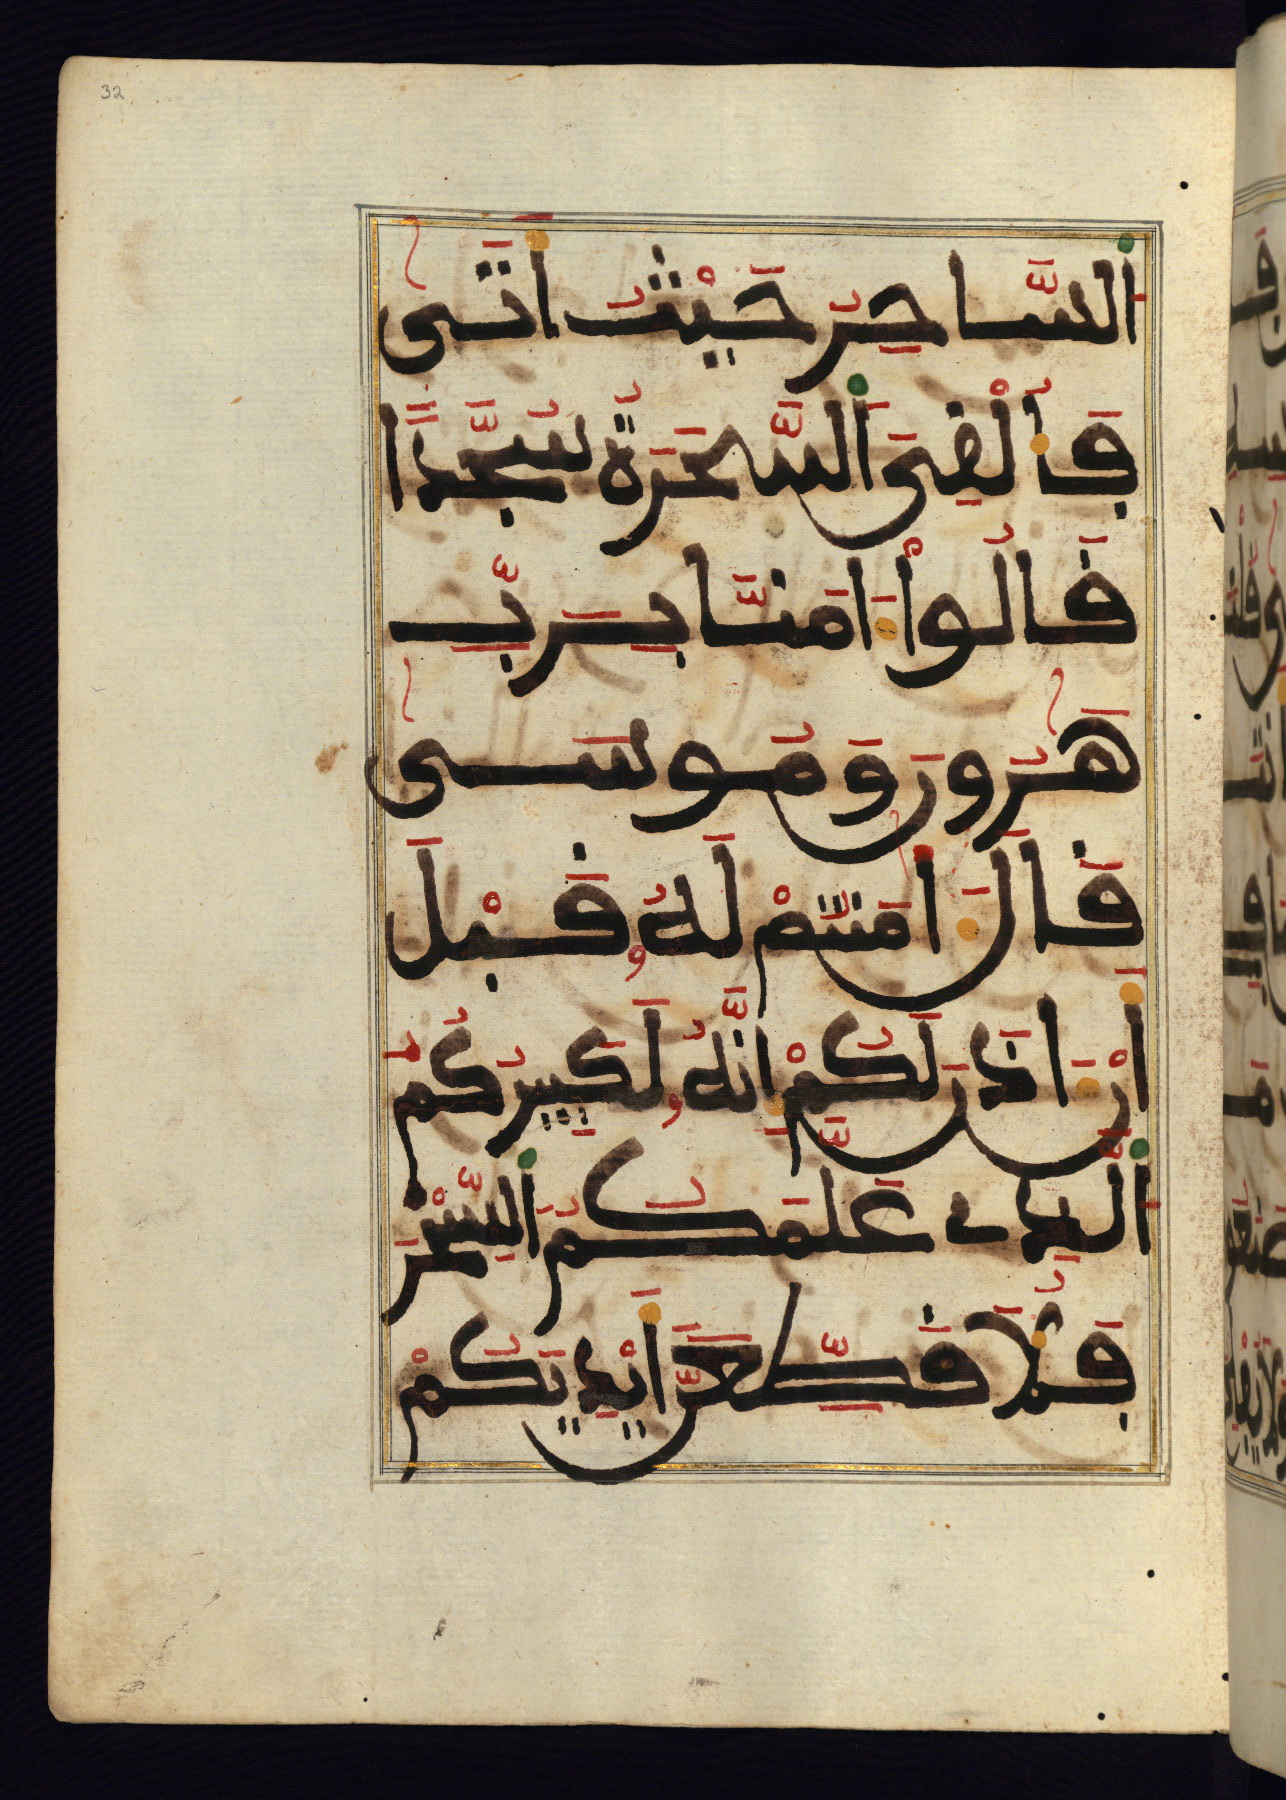 32
السَّاحِرُ حَيْثُ أَتَى
فَأُلْقِيَ السَّحَرَةُ سُجَّدًا
قَالُوا ءَامَنَّا بِرَبِّ
هَرُونَ وَمُوسَى
قَالَ ءَامَنتُمْ لَهُ قَبْلَ
أَنْ ءَاذَنَ لَكُمْ إِنَّهُ لَكَبِيرُكُمُ
الَّذِي عَلَّمَكُمُ السِّحْرَ
فَلَأُقَطِّعَنَّ أَيْدِيَكُمْ